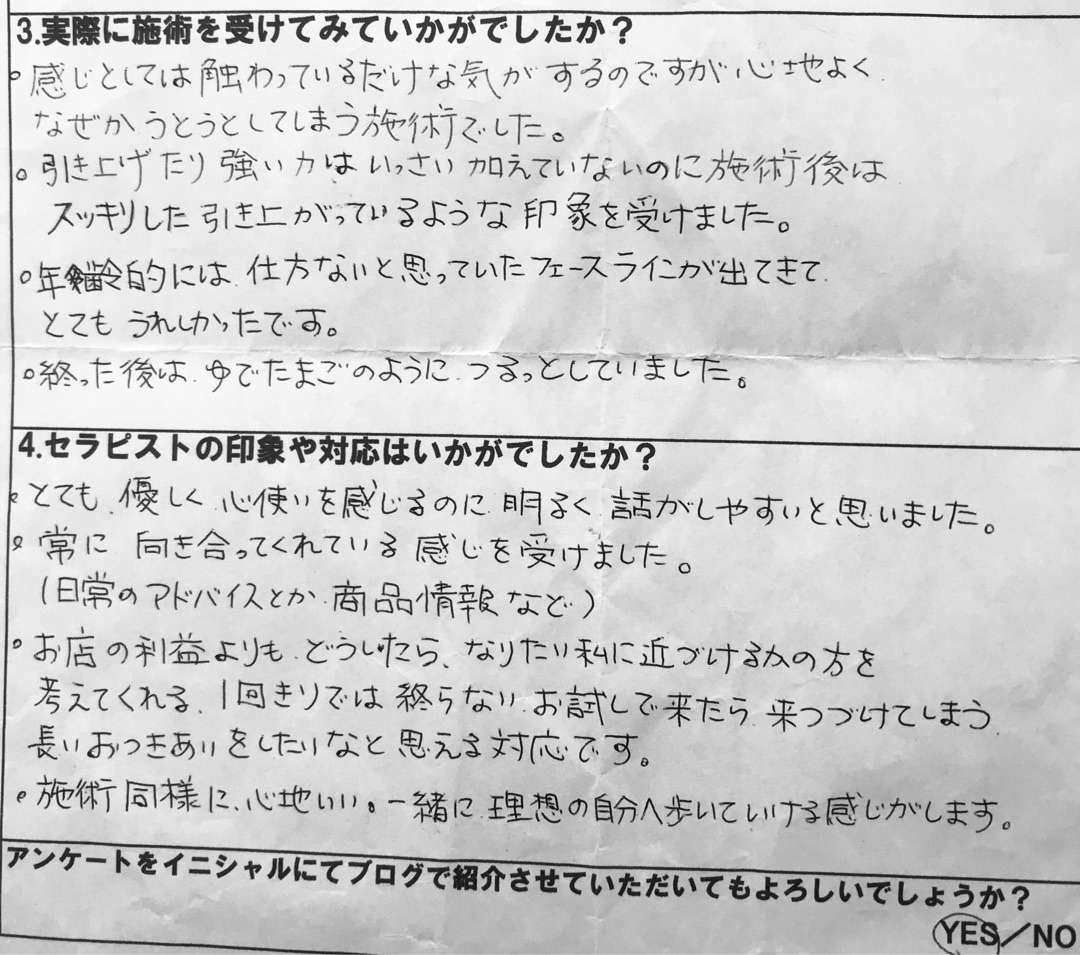 3.実際に施術を受けてみていかがでしたか？
○感じとしては触わっているだけな気がするのですが心地よく
なぜかうとうとしてしまう施術でした。
○引き上げたり強い力はいっさい加えていないのに施術後は
スッキリした引き上がっているような印象を受けました。
○年齢的には仕方ないと思っていたフェースラインが出てきて
とてもうれしかったです。
○終った後はゆでたまごのようにつるっとしていました。
4.セラピストの印象や対応はいかがでしたか？
○とても優しく心使いを感じるのに明るく話がしやすいと思いました。
○常に向き合ってくれている感じを受けました。
(日常のアドバイスとか商品情報など)
○お店の利益よりもどうしたら、なりたい私に近づけるかの方を
考えてくれる、1回きりでは終らないお試しで来たら来つづけてしまう
長いおつきあいをしたいなと思える対応です。
○施術同様に、心地いい。一緒に理想の自分へ歩いていける感じがします。
アンケートをイニシャルにてブログで紹介させていただいてもよろしいでしょうか？
YES／NO